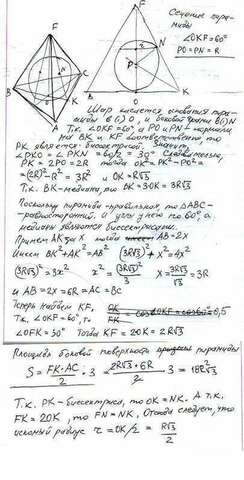 F
F
Сечение пирамиды
∠OKF=60°
PO=PN=R
N
P
K
C
B
O
A
B
O
K
Шар касается основания пирамиды в (·) O, и боковой грани в (·) N
Т.к. ∠OKF=60°, а PO и PN – нормали
на BK и KF соответственно, то
PK является биссектрисой. Значит,
∠PKO = ∠PKN = 60/2 = 30°. Следовательно,
PK = 2PO = 2R тогда OK² = PK² - PO² =
= (2R)² - R² = 3R² и OK = R√3
Т.к. BK – медиана, то BK = 3OK = 3R√3
Поскольку пирамида правильная, то △ABC –
равносторонний. И углы у него по 60°, а
медианы являются биссектрисами.
Примем AK за X тогда AB = 2X
Имеем BK² + AK² = AB² (3R√3)² + X² = 4X²
(3R√3)² = 3x² x² = (3R√3)²/3 X = 3R√3/√3 = 3R
и AB = 2X = 6R = AC = BC
Теперь найдем KF. OK/FK = cos∠OKF = cos60° = 0,5
Т.к. ∠OKF = 60°, то
∠OFK = 30° Тогда KF = 2OK = 2R√3
Площадь боковой поверхности пирамиды
S = FK·AC/2 · 3 = 2R√3·6R/2 · 3 = 18R²√3
Т.к. PK – биссектриса, то OK = NK. А т.к.
FK = 2OK, то FN = NK. Отсюда следует, что
искомый радиус r = OK/2 = R√3/2